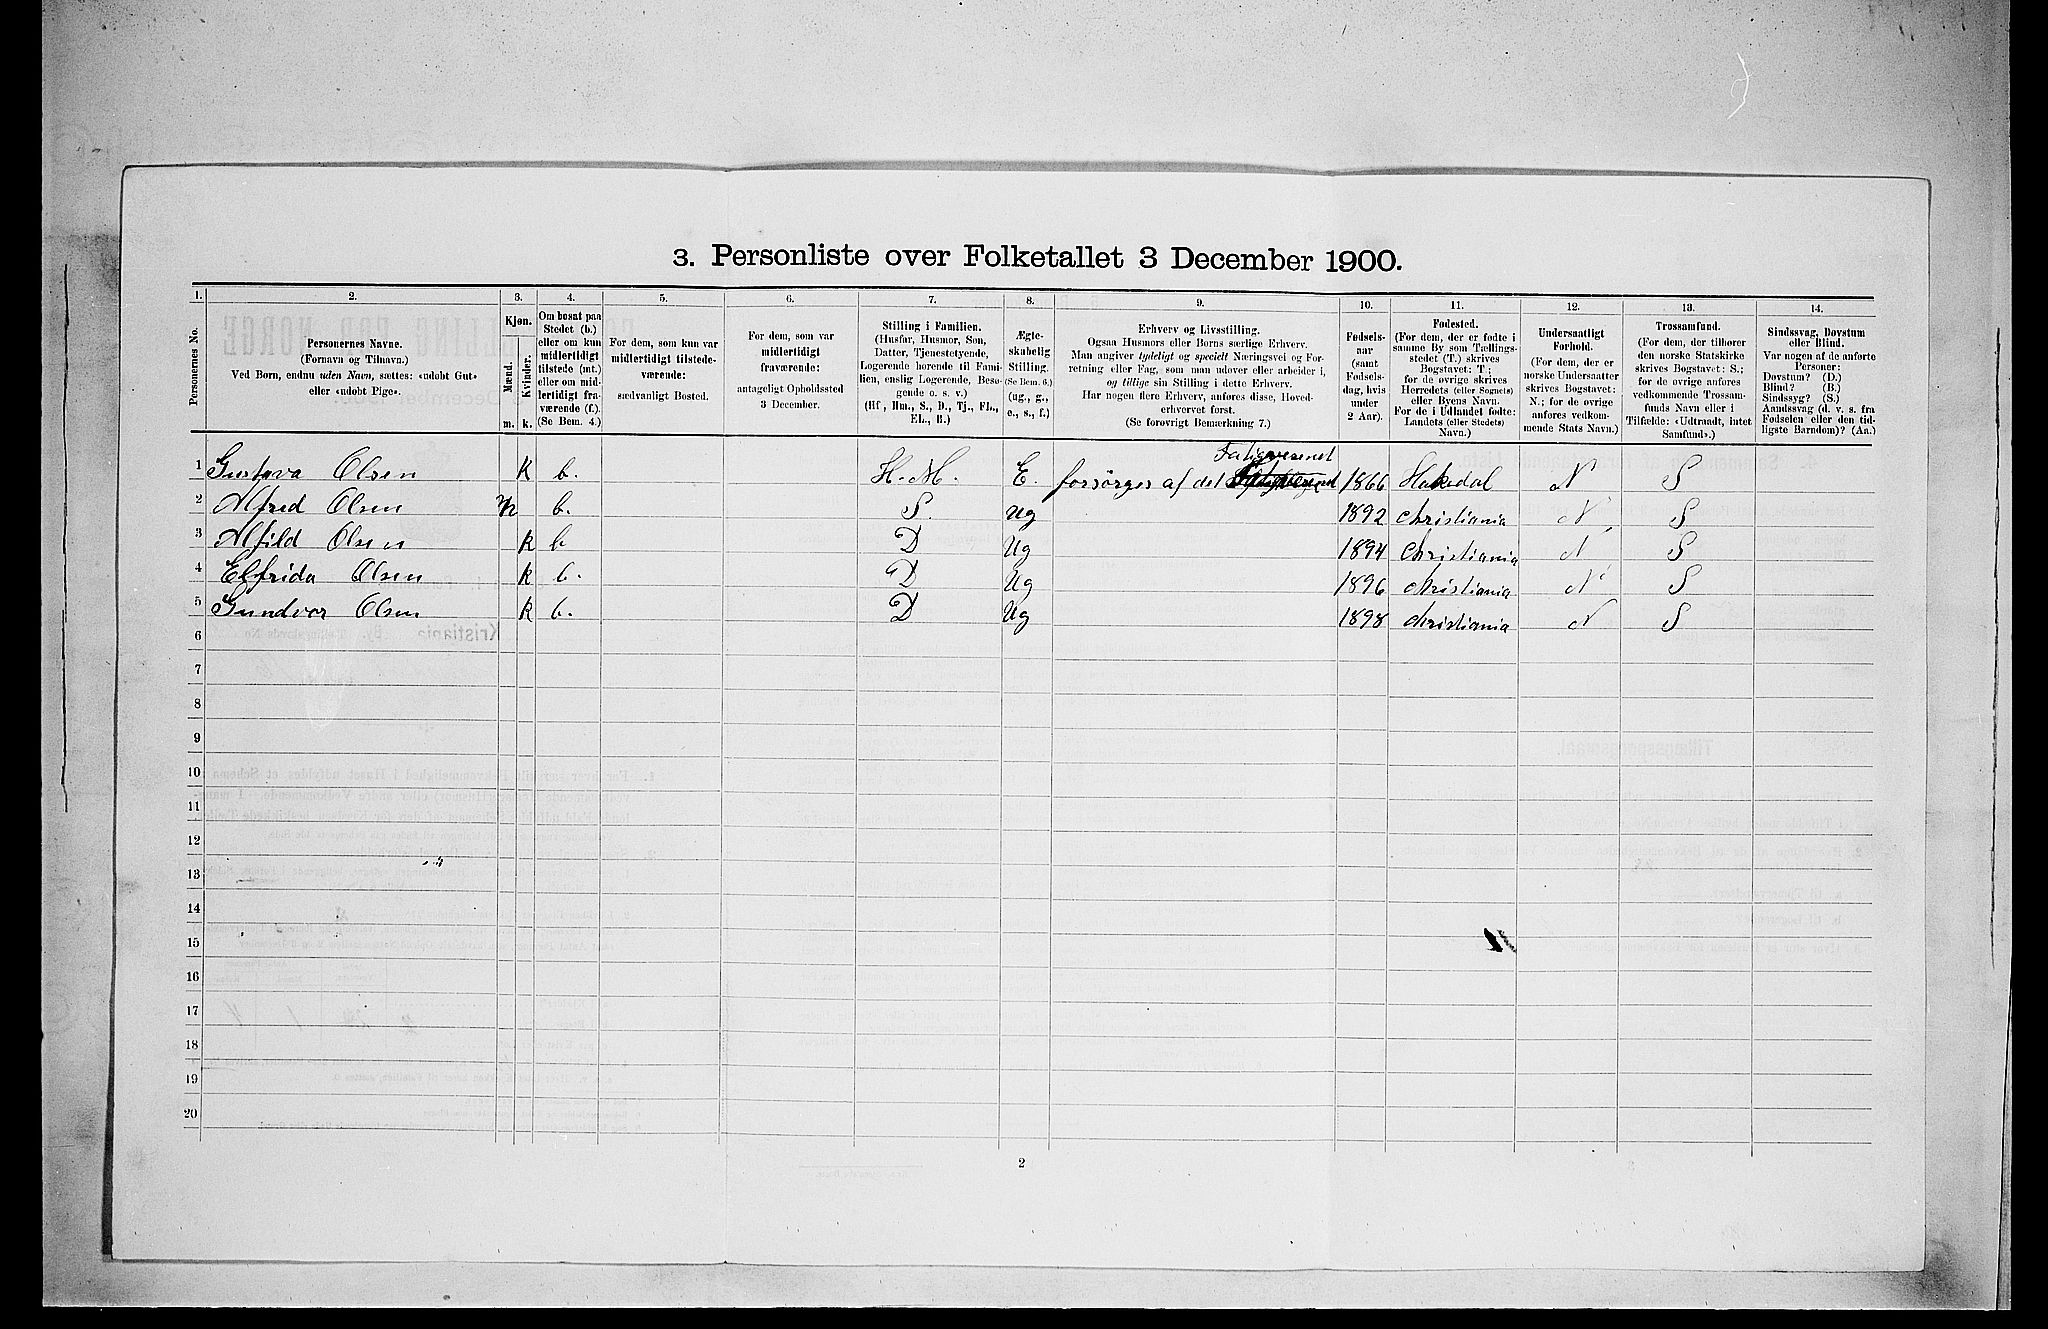 3. Personliste over Folketallet 3 December 1900.
1. 2. 3. 4. 5. 6. 7. 8. 9. 10. 11. 12. 13. 14.
Personernes No.
Personernes Navne.
(Fornavn og Tilnavn.)
Ved Børn, endnu uden Navn, sættes: «udøbt Gut»
eller «udøbt Pige».
Kjøn.
Mænd. Kvinder.
m. k.
Om bosat paa
Stedet (b.)
eller om kun
midlertidigt
tilstede (mt.)
eller om mid-
lertidigt fra-
værende (f.).
(Se Bem. 4.)
For dem, som kun var
midlertidigt tilstede-
værende:
sædvanligt Bosted.
For dem, som var
midlertidigt
fraværende:
antageligt Opholdssted
3 December.
Stilling i Familien.
(Husfar, Husmor, Søn,
Datter, Tjenestetyende,
Logerende hørende til Fami-
lien, enslig Logerende, Besø-
gende o. s. v.)
(Hf., Hm., S., D., Tj., FL.,
EL., B.)
Ægte-
skabelig
Stilling.
(Se Bem. 6.)
(ug., g.,
e., s., f.)
Erhverv og Livsstilling.
Ogsaa Husmors eller Børns særlige Erhverv.
Man angiver tydeligt og specielt Næringsvei og For-
retning eller Fag, som man udøver eller arbeider i,
og tillige sin Stilling i dette Erhverv.
Har nogen flere Erhverv, anføres disse, Hoved-
erhvervet først.
(Se forøvrigt Bemærkning 7.)
Fødsels-
aar
(samt
Fødsels-
dag, hvis
under
2 Aar).
Fødested.
(For dem, der er fødte i
samme By som Tællings-
stedet (T.) skrives
Bogstavet: T;
for de øvrige skrives
Herredets (eller Sognets)
eller Byens Navn.
For de i Udlandet fødte:
Landets (eller Stedets)
Navn.)
Undersaatligt
Forhold.
(For dem, der er
norske Undersaatter
skrives Bogstavet:
N.; for de øvrige
anføres vedkom-
mende Stats Navn.)
Trossamfund.
(For dem, der tilhører
den norske Statskirke
skrives Bogstavet: S.;
for de øvrige anføres
vedkommende Trossam-
funds Navn eller i
Tilfælde: «Udtraadt, intet
Samfund».)
Sindssvag, Døvstum
eller Blind.
Var nogen af de anførte
Personer:
Døvstum? (D.)
Blind? (B.)
Sindssyg? (S.)
Aandssvag (d. v. s. fra
Fødselen eller den tid-
ligste Barndom)? (Aa.)
Fatigvesenet
1 Gustava Olsen k b. H. M. E. forsørges af det 1866 Hakedal N S
2 Alfred Olsen m b. S. Ug 1892 Christiania N S
3 Alfild Olsen k b D Ug 1894 Christiania N S
4 Elfrida Olsen k b. D Ug 1896 Christiania N S
5 Gundvor Olsen k b. D Ug 1898 Christiania N S
6
7
8
9
10
11
12
13
14
15
16
17
18
19
20
2